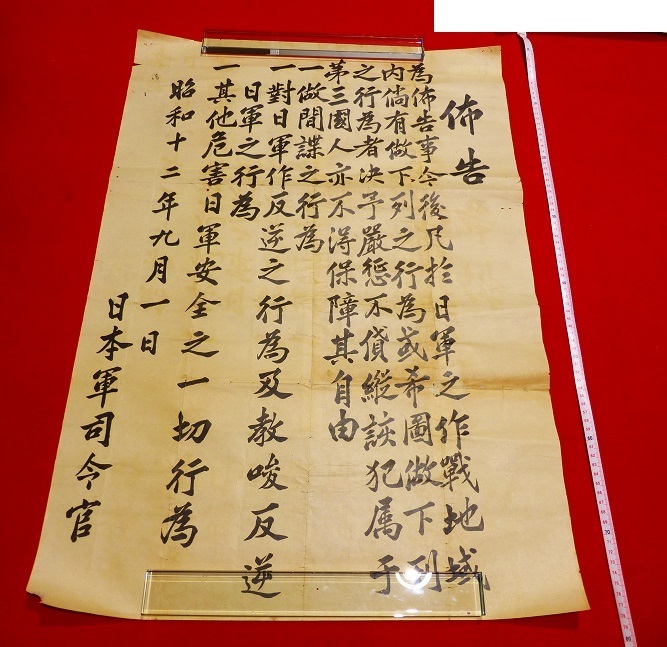 佈告
為佈告事今後凡扵日軍之作戰地域
內倘有做下列之行為或希圖做下列
之行為者決予嚴惩不貸縱該犯属于
第三國人亦不得保障其自由
一做間諜之行為
一對日軍作反逆之行為及教唆反逆
日軍之行為
一其他危害日軍安全之一切行為
昭和十二年九月一日
日本軍司令官